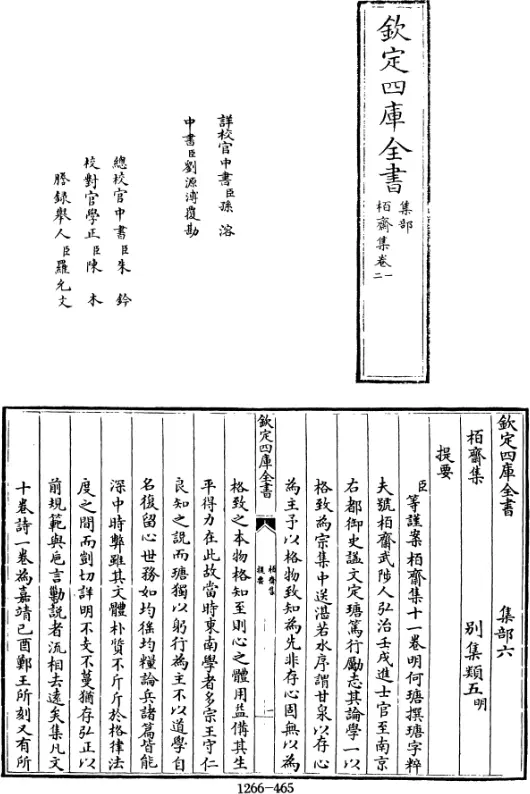 欽定四庫全書
集部
栢齋集卷一
二
詳校官中書臣孫溶
中書臣劉源溥覆勘
總校官中書臣朱鈐
校對官學正臣陳木
謄錄舉人臣羅允文
欽定四庫全書 集部六
栢齋集 別集類五明
提要
臣等謹案栢齋集十一卷明何瑭撰瑭字粹
夫號栢齋武陟人弘治壬戌進士官至南京
右都御史諡文定瑭篤行勵志其論學一以
格致為宗集中送湛若水序謂甘泉以存心
為主予以格物致知為先非存心固無以為
欽定四庫全書
栢齋集
提要
一
格致之本物格知至則心之體用益備其生
平得力在此故當時東南學者多宗王守仁
良知之說而瑭獨以躬行為主不以道學自
名復留心世務如均徭均糧論兵諸篇皆能
深中時弊雖其文體朴質不斤斤於格律法
度之間而剴切詳明不支不蔓猶存弘正以
前規範與巵言勦說者流相去遠矣集凡文
十卷詩一卷為嘉靖己酉鄭王所刻又有所
1266-465